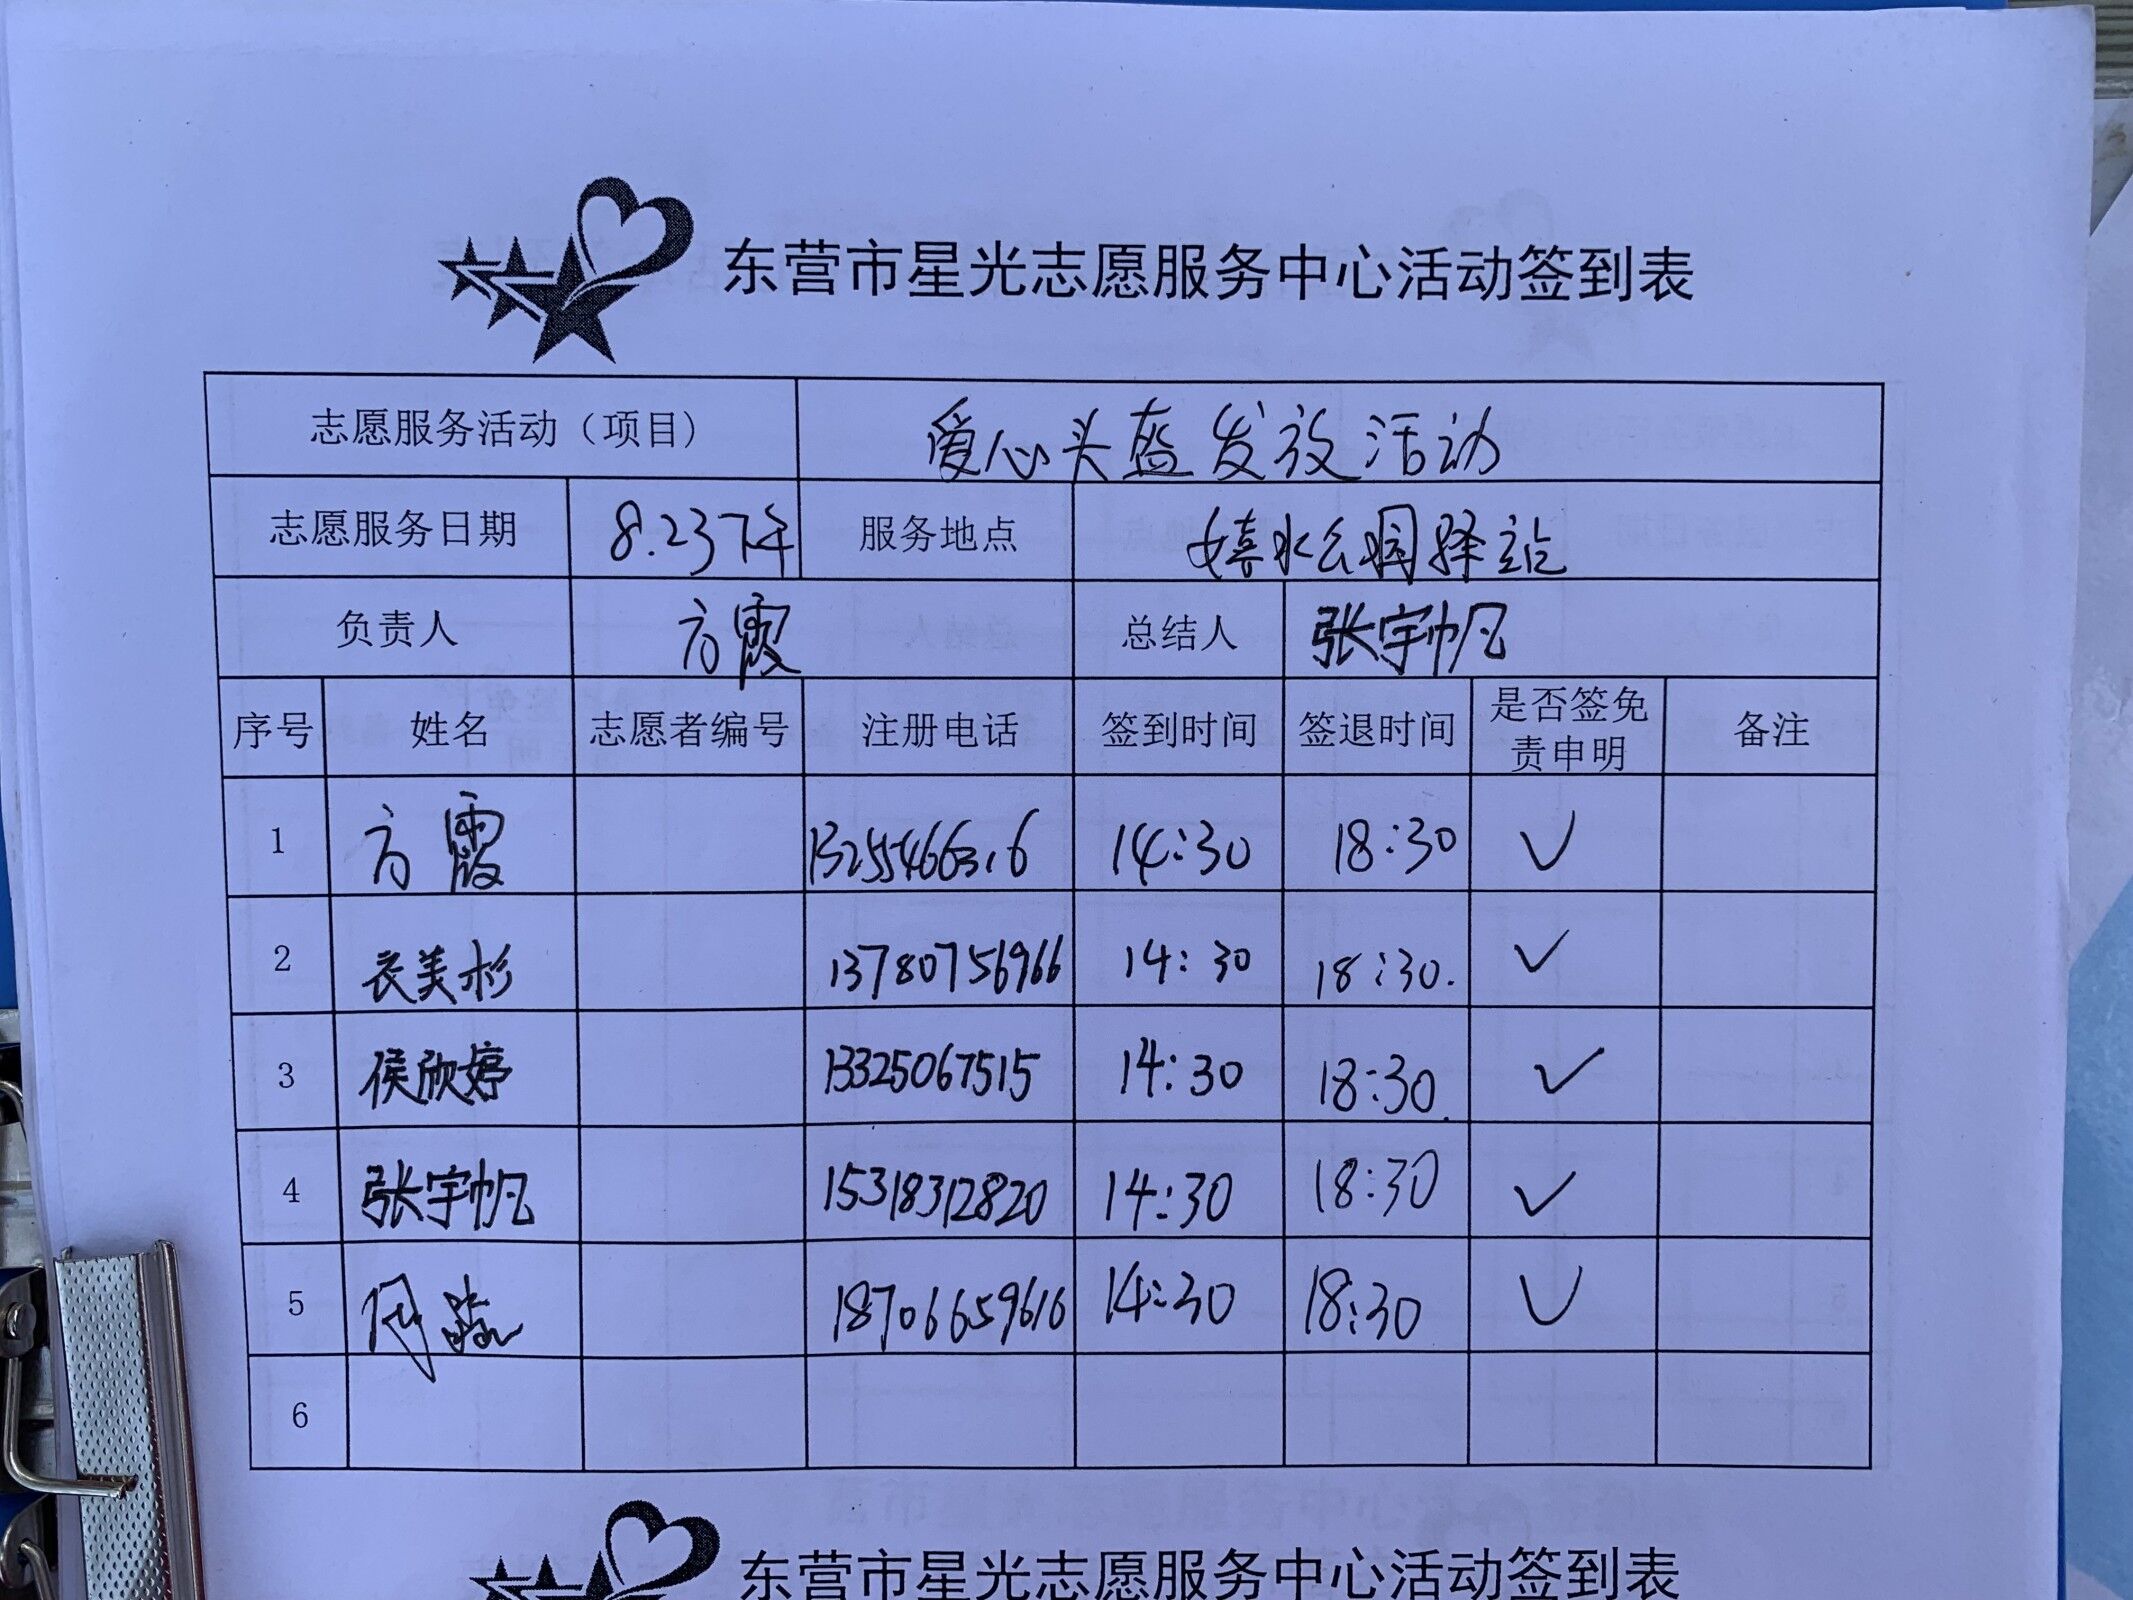 东营市星光志愿服务中心活动签到表
志愿服务活动（项目） 爱心头盔发放活动
志愿服务日期 8.23下午 服务地点 嬉水公园驿站
负责人 方霞 总结人 张宇帆
序号 姓名 志愿者编号 注册电话 签到时间 签退时间 是否签免责申明 备注
1 方霞 14:30 18:30 ✓
2 衣美杉 13780756966 14:30 18:30. ✓
3 侯欣婷 13325067515 14:30 18:30. ✓
4 张宇帆 15318312820 14:30 18:30 ✓
5 18706659616 14:30 18:30 ✓
6
东营市星光志愿服务中心活动签到表